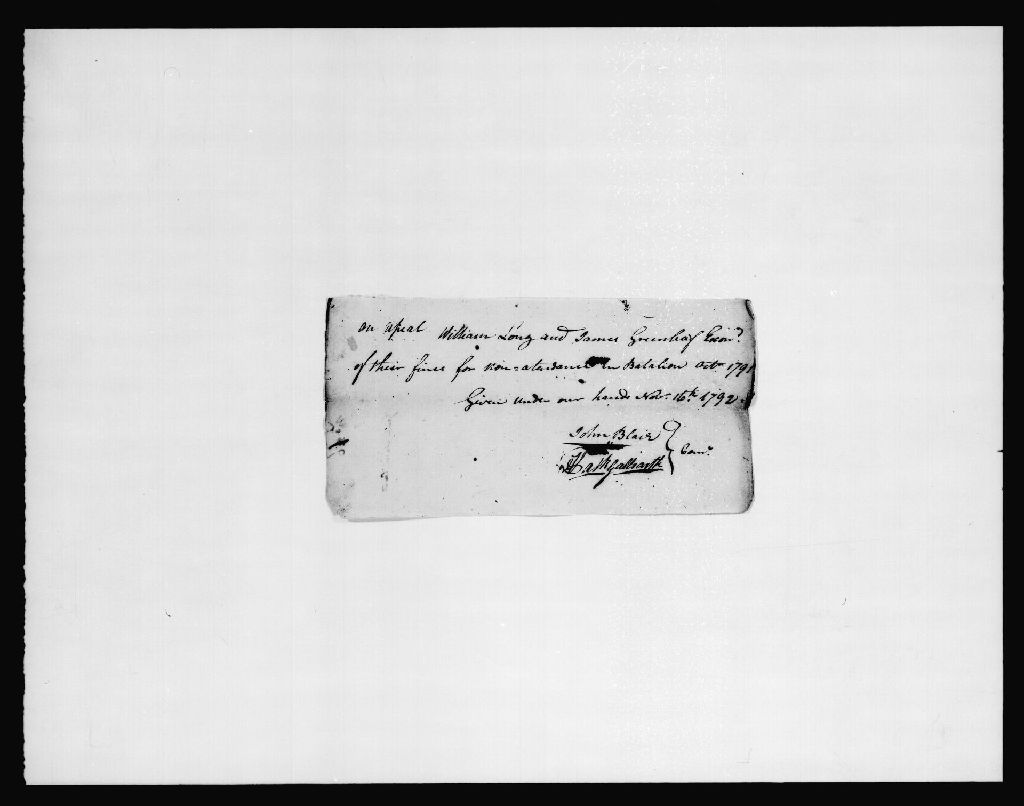 on apeal William Long and James Greenleaf Exon.d
of their fines for non-atendance in Batalion Octr 1791
Given under our hands Nov.r 16.th 1792
John Blair
Galbraith } Com.rs